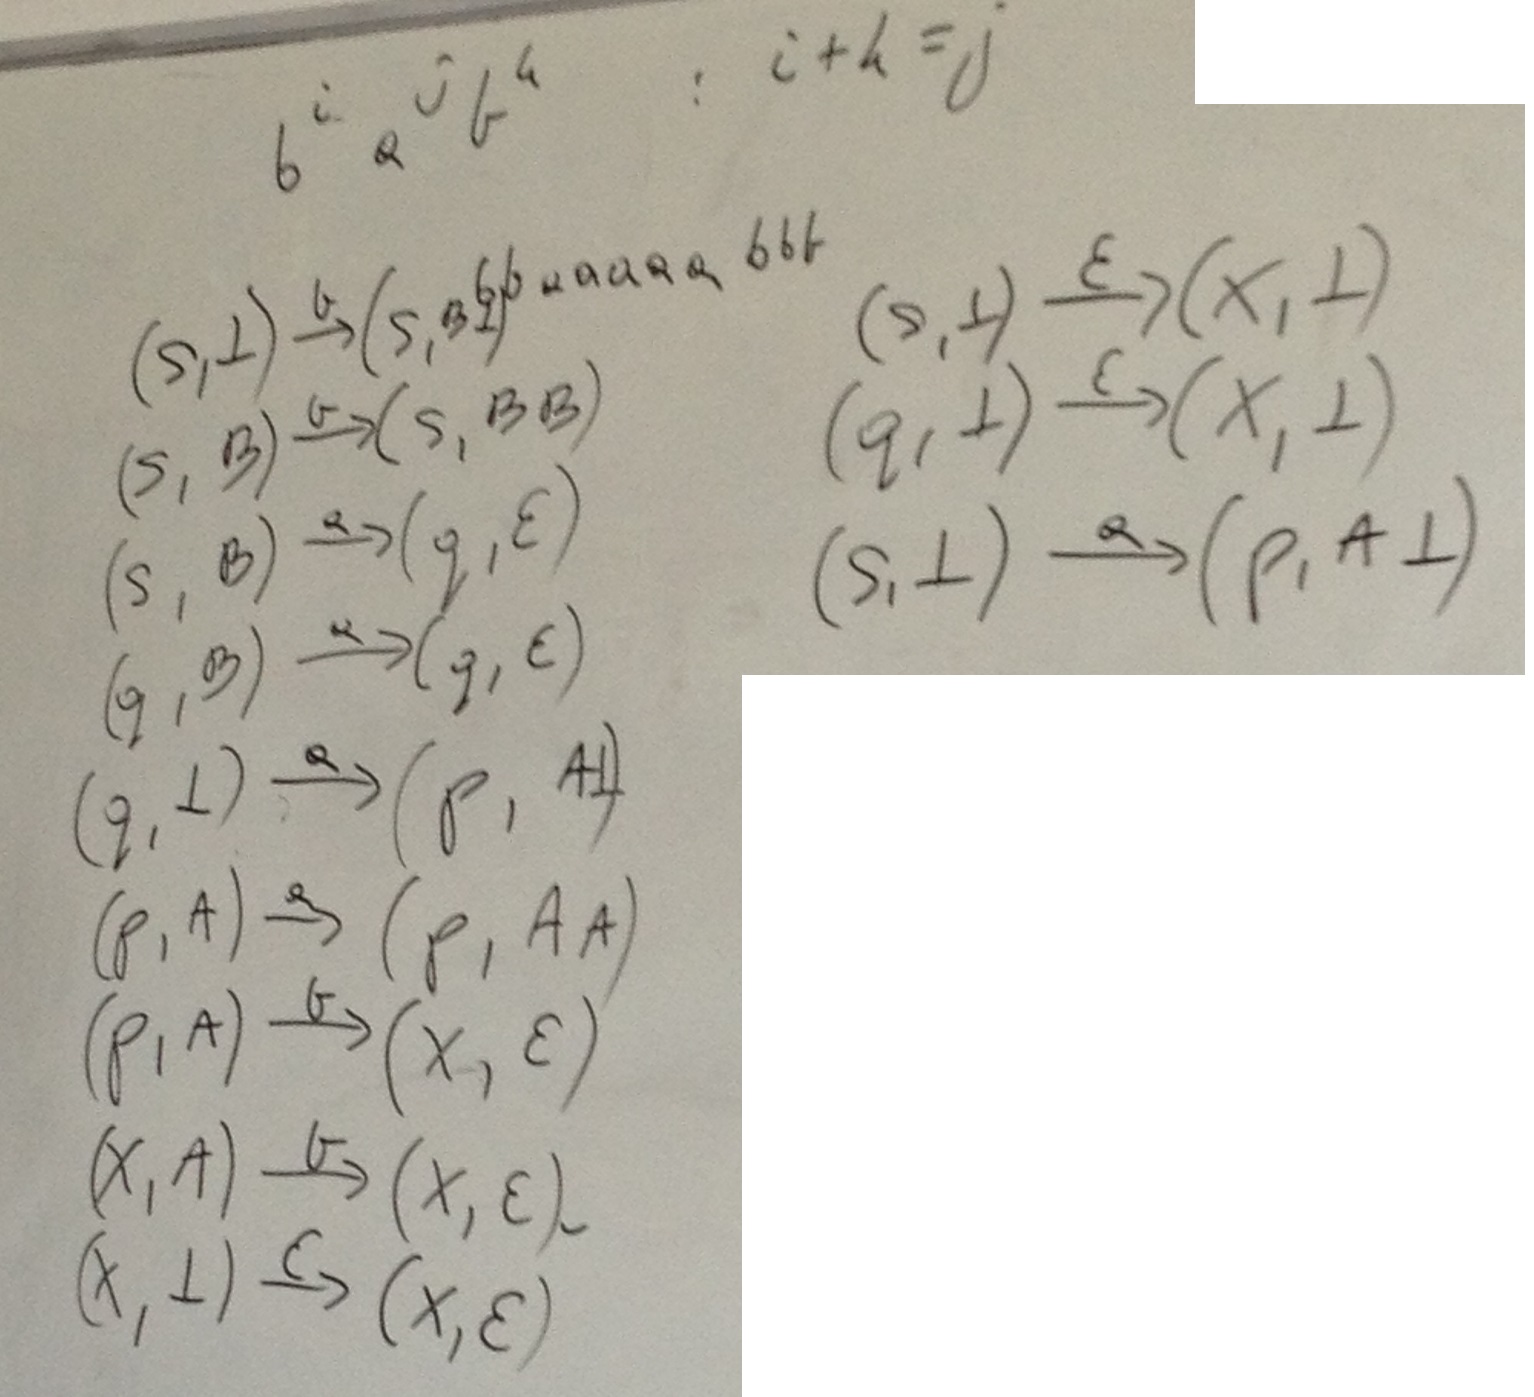 bⁱ aʲ bᵏ : i + k = j
bbaaaaabbb
(s, ⊥) —b→ (s, B⊥)
(s, B) —b→ (s, BB)
(s, B) —a→ (q, ε)
(q, B) —a→ (q, ε)
(q, ⊥) —a→ (p, A⊥)
(p, A) —a→ (p, AA)
(p, A) —b→ (x, ε)
(x, A) —b→ (x, ε)
(x, ⊥) —ε→ (x, ε)
(s, ⊥) —ε→ (x, ⊥)
(q, ⊥) —ε→ (x, ⊥)
(s, ⊥) —a→ (p, A⊥)